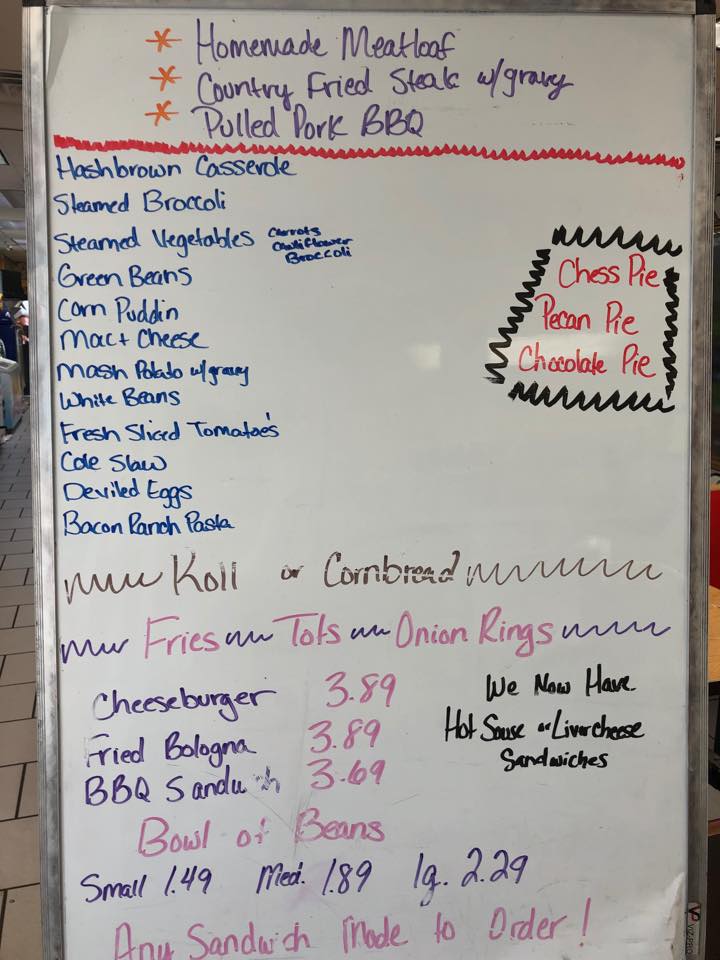 * Homemade Meatloaf
* Country Fried Steak w/gravy
* Pulled Pork BBQ
Hashbrown Casserole
Steamed Broccoli
Steamed Vegetables Carrots Cauliflower Broccoli
Green Beans
Corn Puddin
Mac + Cheese
Mash Potato w/gravy
White Beans
Fresh Sliced Tomatoe's
Cole Slaw
Deviled Eggs
Bacon Ranch Pasta
Chess Pie
Pecan Pie
Chocolate Pie
Roll or Cornbread
Fries Tots Onion Rings
Cheeseburger 3.89
Fried Bologna 3.89
BBQ Sandwich 3.69
We Now Have
Hot Souse or Livercheese
Sandwiches
Bowl of Beans
Small 1.49 Med. 1.89 lg. 2.29
Any Sandwich Made to Order!
VIZ-PRO